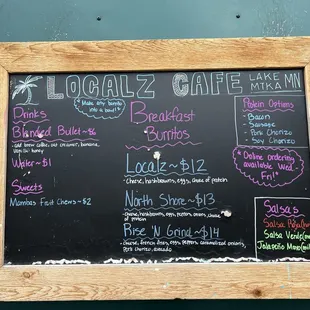 LOCALZ CAFE
LAKE
MTKA MN
"Make any burrito
into a bowl!"
Drinks
Blended Bullet ~$6
cold brew coffee, oat creamer, banana,
honey
Water ~ $1
Sweets
Mambas Fruit Chews ~ $2
Breakfast
Burritos
Localz ~ $12
Cheese, hashbrowns, eggs, choice of protein
North Shore ~ $13
Cheese, hashbrowns, eggs, peppers, onions, choice
of protein
Rise 'N Grind ~ $14
Cheese, french fries, eggs, peppers, caramelized onions,
Pork Chorizo, avocado
Protein Options
- Bacon
- Sausage
- Pork Chorizo
- Soy Chorizo
*Online ordering
available Wed,
Fri!*
Salsas
Salsa Roja
Salsa Verde
Jalapeño